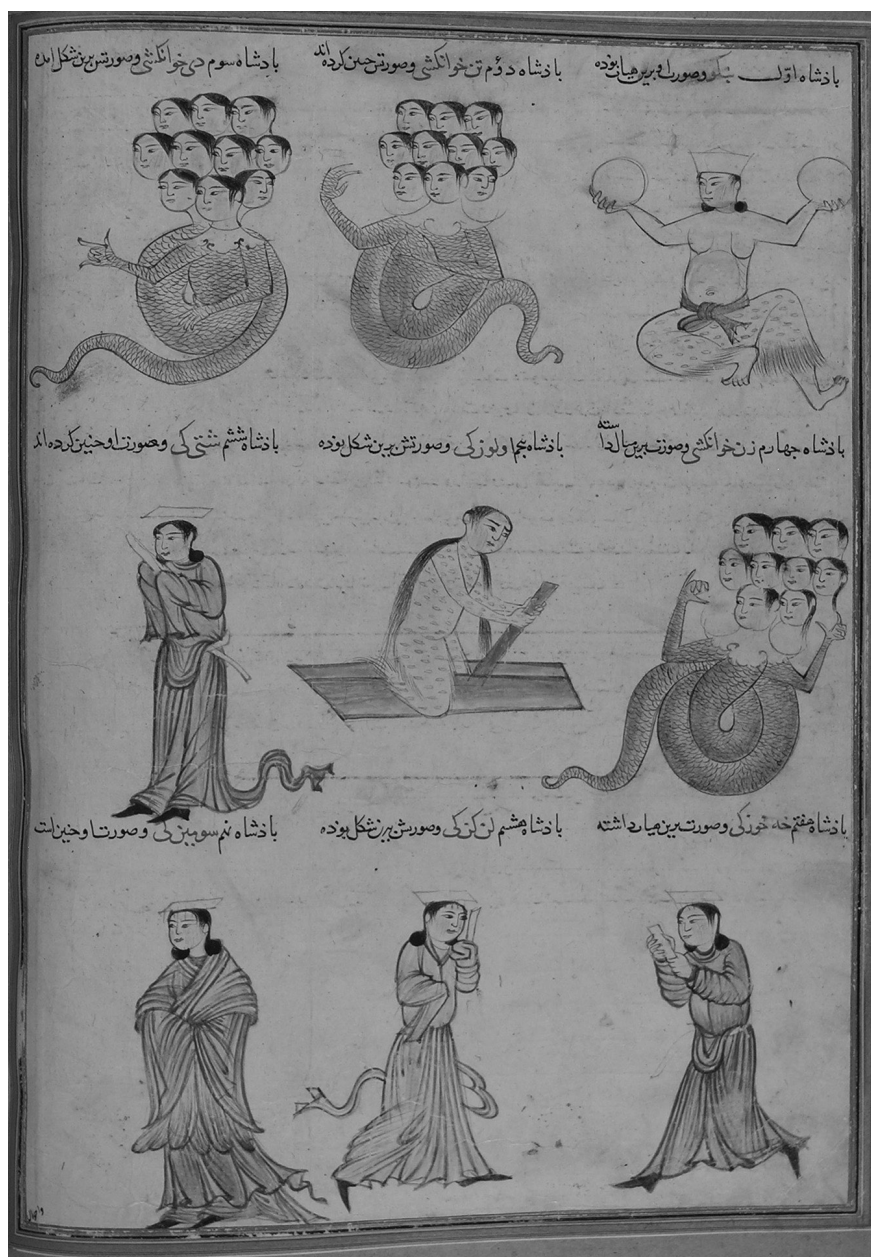 باذشاه اوّل بنکو وصورت او برین هیأت بوده
باذشاه دوّم تن خوانکشی وصورتش جنین کرده‌اند
باذشاه سوم دی خوانکشی وصورتش برین شکل امده
باذشاه جهارم زن خوانکشی وصورت برین مثال داسته
باذشاه بنجم ولوزکی وصورتش برین شکل بوذه
باذشاه ششم شتی کی وصورت او جنین کرده اند
باذشاه هفتم خه خوزکی وصورت برین هیات داشته
باذشاه هشتم لن کن کی وصورتش برین شکل بوذه
باذشاه نهم سویین کی وصورت او جنین است